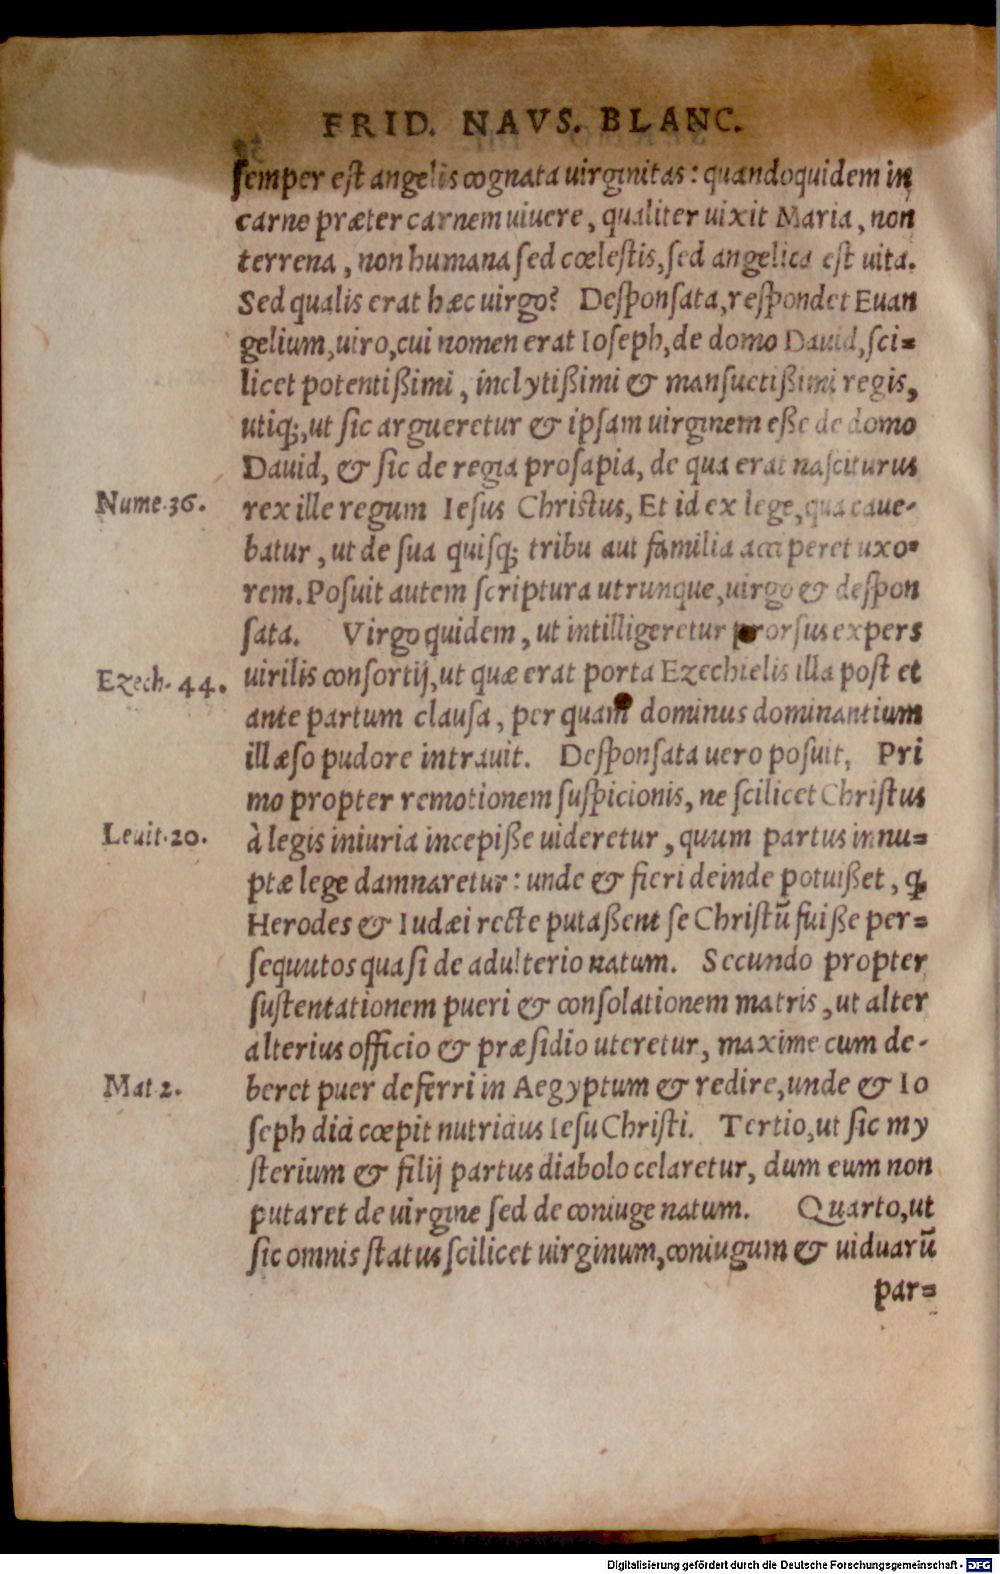 FRID. NAVS. BLANC.
ſemper eſt angelis cognata uirginitas: quandoquidem in
carne præter carnem uiuere, qualiter uixit Maria, non
terrena, non humana ſed cœleſtis, ſed angelica eſt uita.
Sed qualis erat hæc uirgo? Deſponſata, reſpondet Euan
gelium, uiro, cui nomen erat Ioſeph, de domo Dauid, ſci=
licet potentißimi, inclytißimi & manſuetißimi regis,
utiq;, ut ſic argueretur & ipſam uirginem eße de domo
Dauid, & ſic de regia proſapia, de qua erat naſciturus
Nume. 36.
rex ille regum Ieſus Chriſtus, Et id ex lege, qua caue-
batur, ut de ſua quiſq; tribu aut familia acciperet uxo=
rem. Poſuit autem ſcriptura utrunque, uirgo & deſpon
ſata. Virgo quidem, ut intilligeretur prorſus expers
Ezech. 44.
uirilis conſortij, ut quæ erat porta Ezechielis illa poſt et
ante partum clauſa, per quam dominus dominantium
illæſo pudore intrauit. Deſponſata uero poſuit, Pri
mo propter remotionem ſuſpicionis, ne ſcilicet Chriſtus
Leuit. 20.
à legis iniuria incepiße uideretur, quum partus innu=
ptæ lege damnaretur: unde & fieri deinde potuißet, ꝙ
Herodes & Iudæi recte putaßent ſe Chriſtū fuiße per=
ſequutos quaſi de adulterio natum. Secundo propter
ſuſtentationem pueri & conſolationem matris, ut alter
alterius officio & præſidio uteretur, maxime cum de-
Mat 2.
beret puer deferri in Aegyptum & redire, unde & Io
ſeph dici cœpit nutricius Ieſu Chriſti. Tertio, ut ſic my
ſterium & filij partus diabolo celaretur, dum eum non
putaret de uirgine ſed de coniuge natum. Quarto, ut
ſic omnis ſtatus ſcilicet uirginum, coniugum & uiduarū
par=
Digitalisierung gefördert durch die Deutsche Forschungsgemeinschaft - DFG